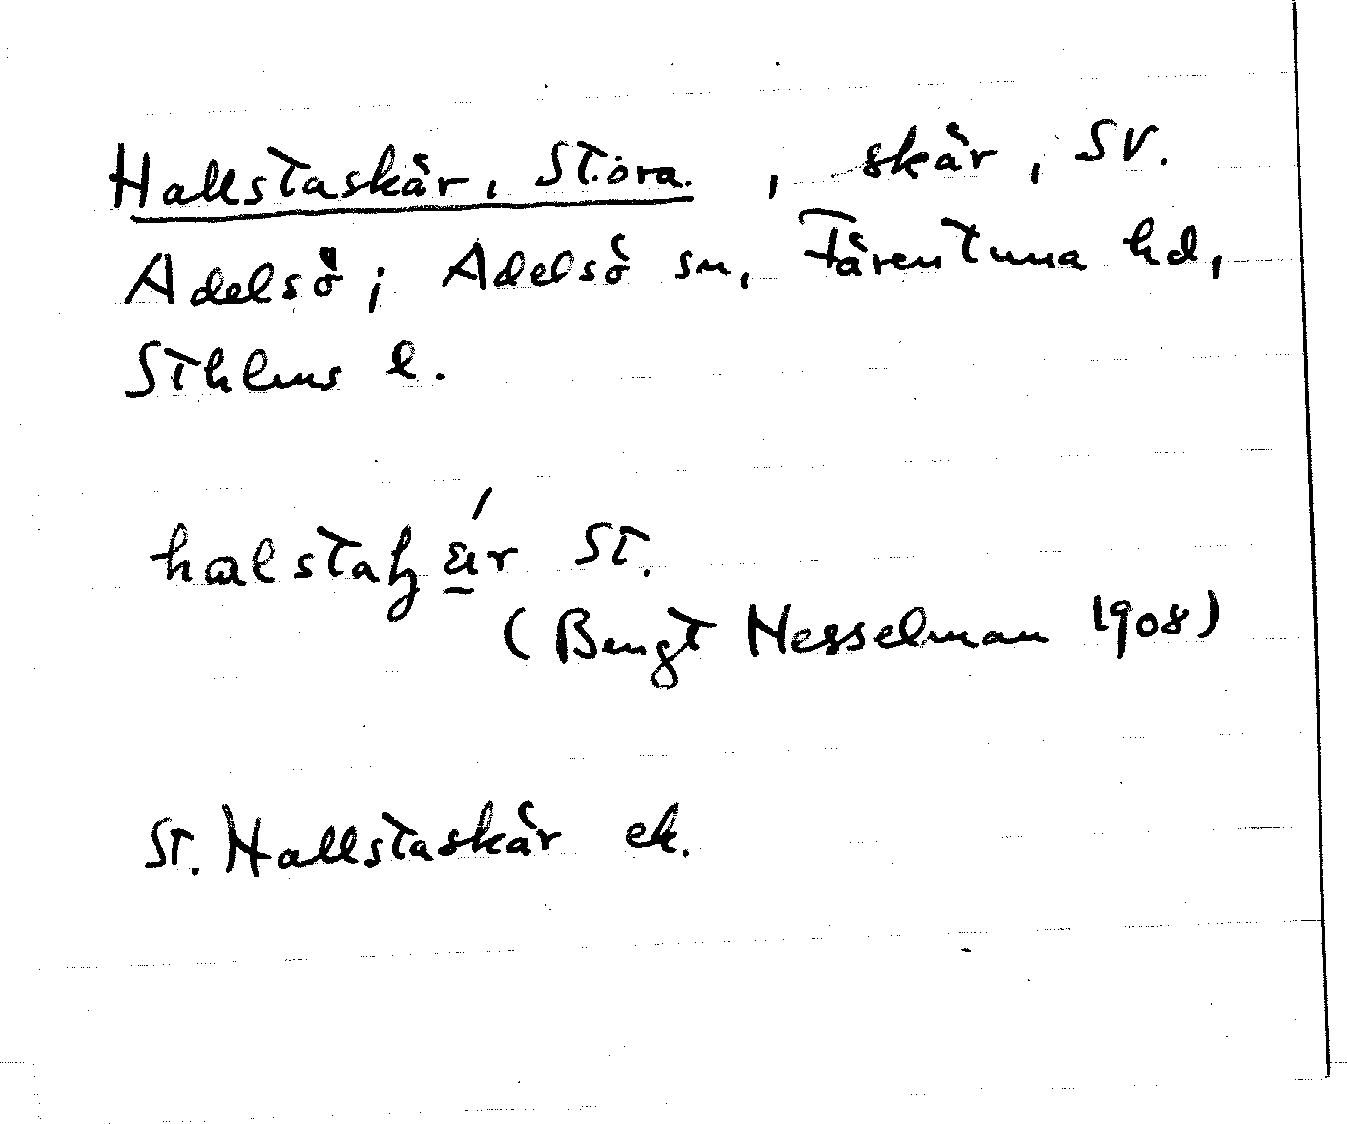 Hallstaskär, Stora. , skär, SV.
Adelsö; Adelsö sn, Färentuna hd,
Sthlms l.
St.
(Bengt Hesselman 1908)
St. Hallstaskär ek.